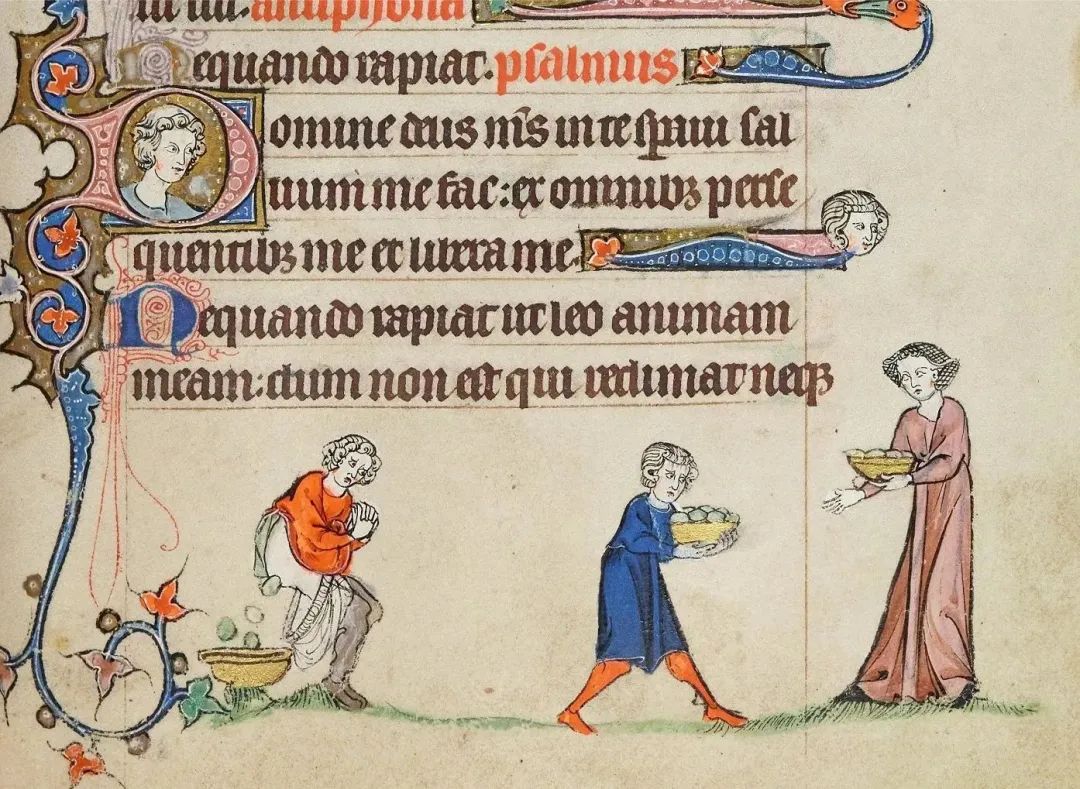 antiphona
Nequando rapiat. psalmus
Domine deus m̄s in te sꝑaui sal
uum me fac: ex omnibꝫ perse
quentibꝫ me et libera me.
Nequando rapiat ut leo animam
meam: dum non est qui redimat neqꝫ